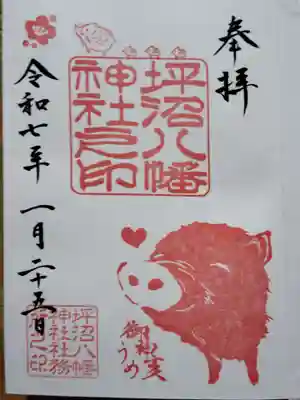 奉拝
坪沼八幡
神社之印
令和七年 一月二十五日
坪沼八幡
神社社務
所之印
うめ